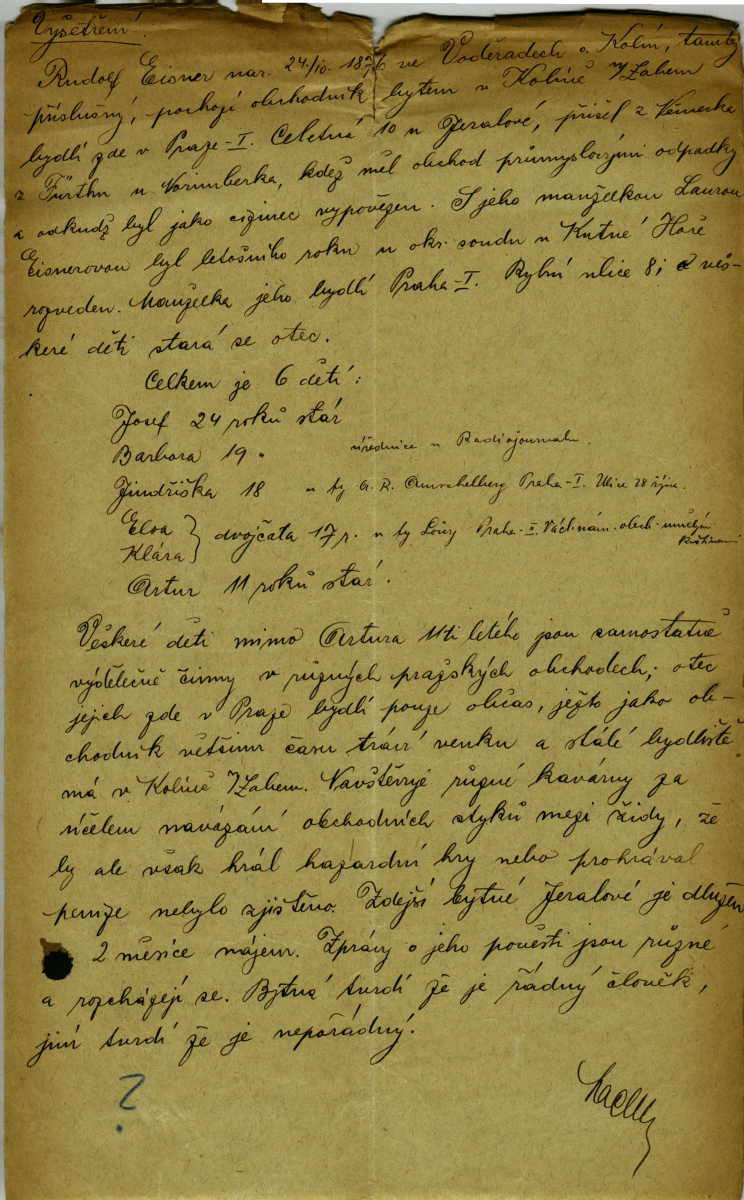 Vyšetření.
Rudolf Eisner nar. 24./10. 1876 ve Voděradech o. Kolín, tamtéž
příslušný, pochozí obchodník bytem v Kolíně
bydlí zde v Praze-I. Celetná 10 u Jeralové, přišel z Německa
z Fürthu u Norimberka, kdež měl obchod průmyslovými odpadky
a odkudž byl jako cizinec vypovězen. S jeho manželkou Laurou
Eisnerovou byl letošního roku u okr. soudu v Kutné Hoře
rozveden. Manželka jeho bydlí Praha-I. Rybná ulice 8; o veš-
keré děti stará se otec.
Celkem je 6 dětí:
Josef 24 roků stár
Barbora 19 " úřednice u Radiojournalu.
Jindřiška 18 u fy Praha-I. Ulice 28 října.
Elsa } dvojčata 17 r. u fy Praha-II. Václ. nám. obch.
Klára
Artur 11 roků stár.
Veškeré děti mimo Artura 11ti letého jsou samostatně
výdělečně činny v různých pražských obchodech; otec
jejich zde v Praze bydlí pouze občas, ježto jako ob-
chodník většinu času tráví venku a stálé bydliště
má v Kolíně. Navštěvuje různé kavárny za
účelem navázání obchodních styků mezi židy, že
by ale však hrál hazardní hry nebo prohrával
peníze nebylo zjištěno. Zdejší bytné Jeralové je dlužen
2 měsíce nájem. Zprávy o jeho pověsti jsou různé
a rozcházejí se. Bytná tvrdí že je řádný člověk,
jiní tvrdí že je nepořádný.
?